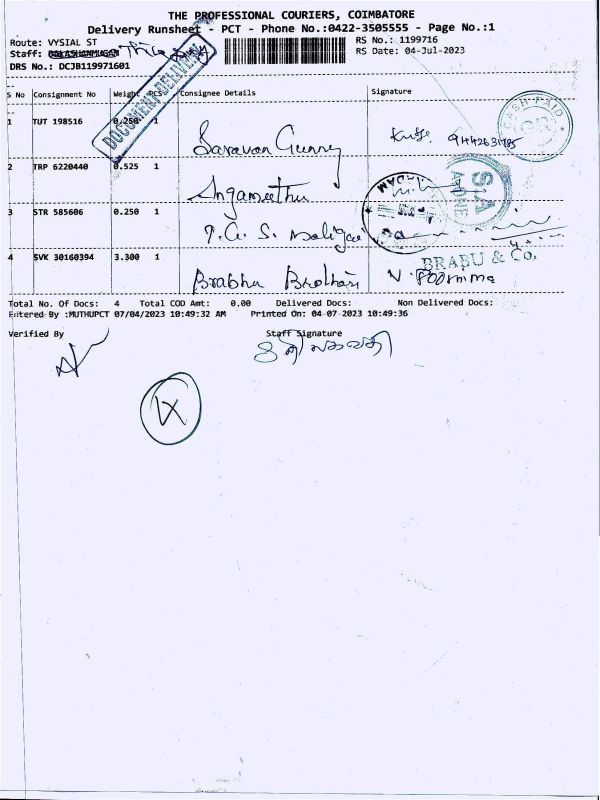 THE PROFESSIONAL COURIERS, COIMBATORE
Delivery Runsheet - PCT - Phone No.:0422-3505555 - Page No.:1
Route: VYSIAL ST
RS No.: 1199716
Staff:
RS Date: 04-Jul-2023
DRS No.: DCJB119971601
DOCUMENT DELIVERY
S No Consignment No Weight PCS Consignee Details Signature
CASH PAID
1 TUT 198516 0.250 1 Saravan Gunny
2 TRP 6220440 0.525 1 Angameethu
3 STR 585606 0.250 1 P.G. S. maligai
4 SVK 30160394 3.300 1 Brabhu Brothers
BRABU & Co.
N. Poornima
Total No. Of Docs: 4 Total COD Amt: 0.00 Delivered Docs: Non Delivered Docs:
Entered By :MUTHUPCT 07/04/2023 10:49:32 AM Printed On: 04-07-2023 10:49:36
Verified By Staff Signature